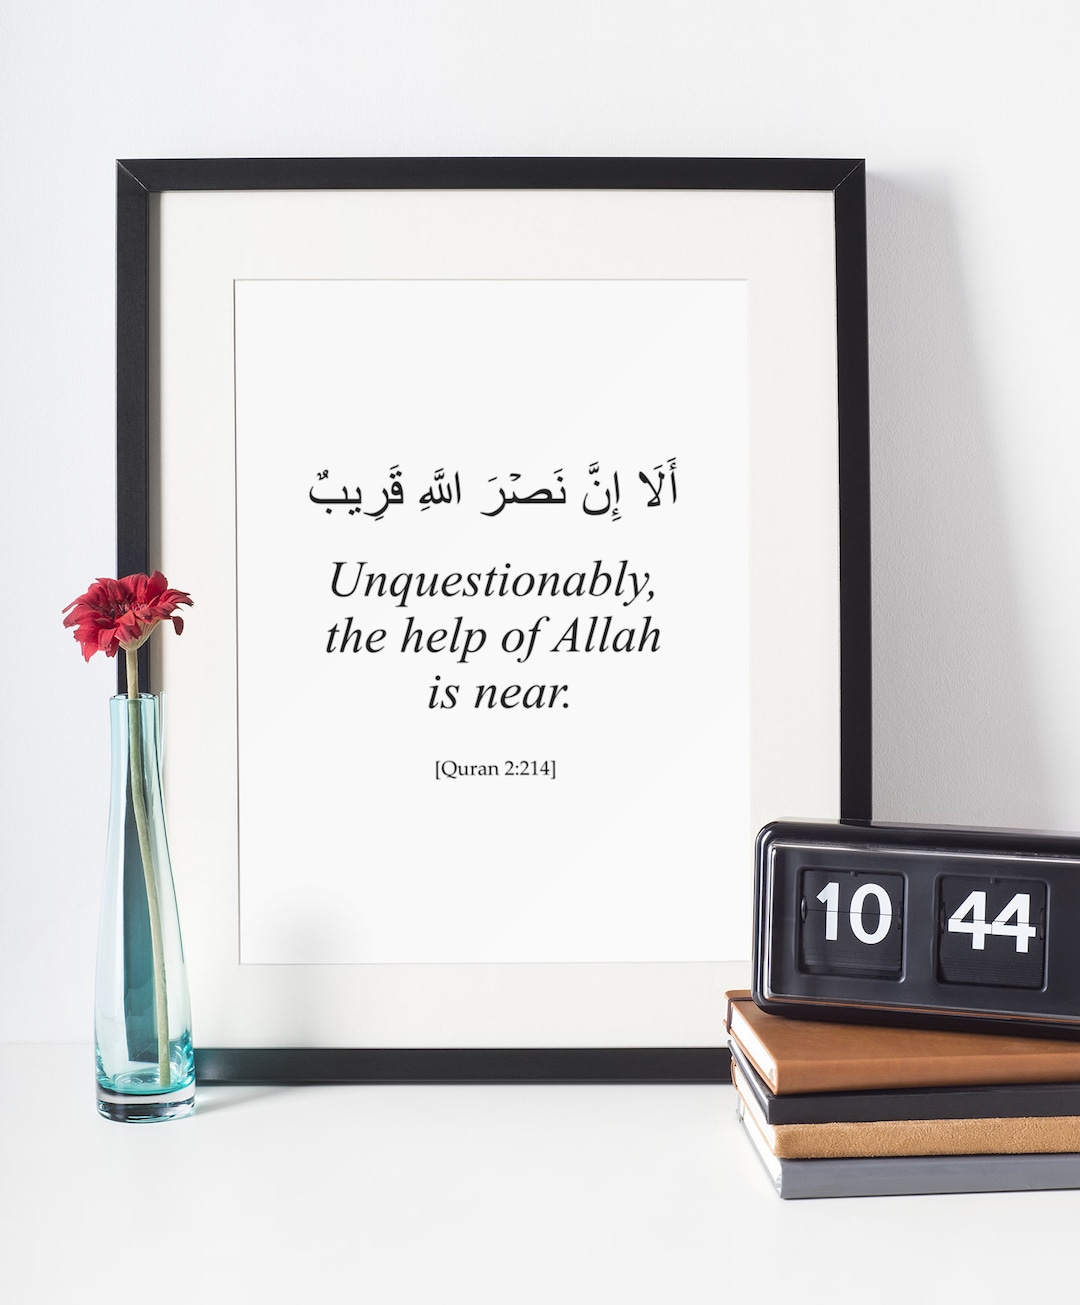 أَلَا إِنَّ نَصْرَ اللَّهِ قَرِيبٌ
Unquestionably,
the help of Allah
is near.
[Quran 2:214]
10 44